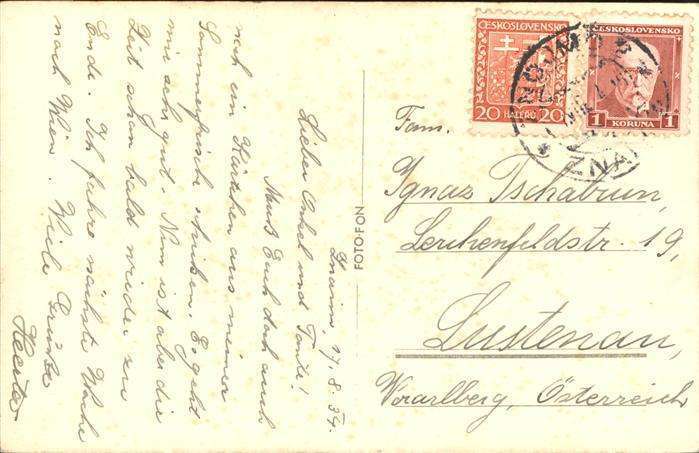 Znaim 17.8.34.
Lieber Onkel und Tante!
Muß Euch doch auch
noch ein Kärtchen aus meiner
Sommerfrische schicken. Es geht
mir sehr gut. Nun ist aber die
Zeit schon bald wieder zu
Ende. Ich fahre nächste Woche
nach Wien. Viele Grüße
FOTOFON
ČESKOSLOVENSKO
20 HALÉŘŮ 20
ČESKOSLOVENSKO
1 KORUNA 1
ZNOJMO
ZNAIM
Fam.
Ignaz Tschabrun,
Lerchenfeldstr. 19,
Lustenau,
Vorarlberg, Österreich